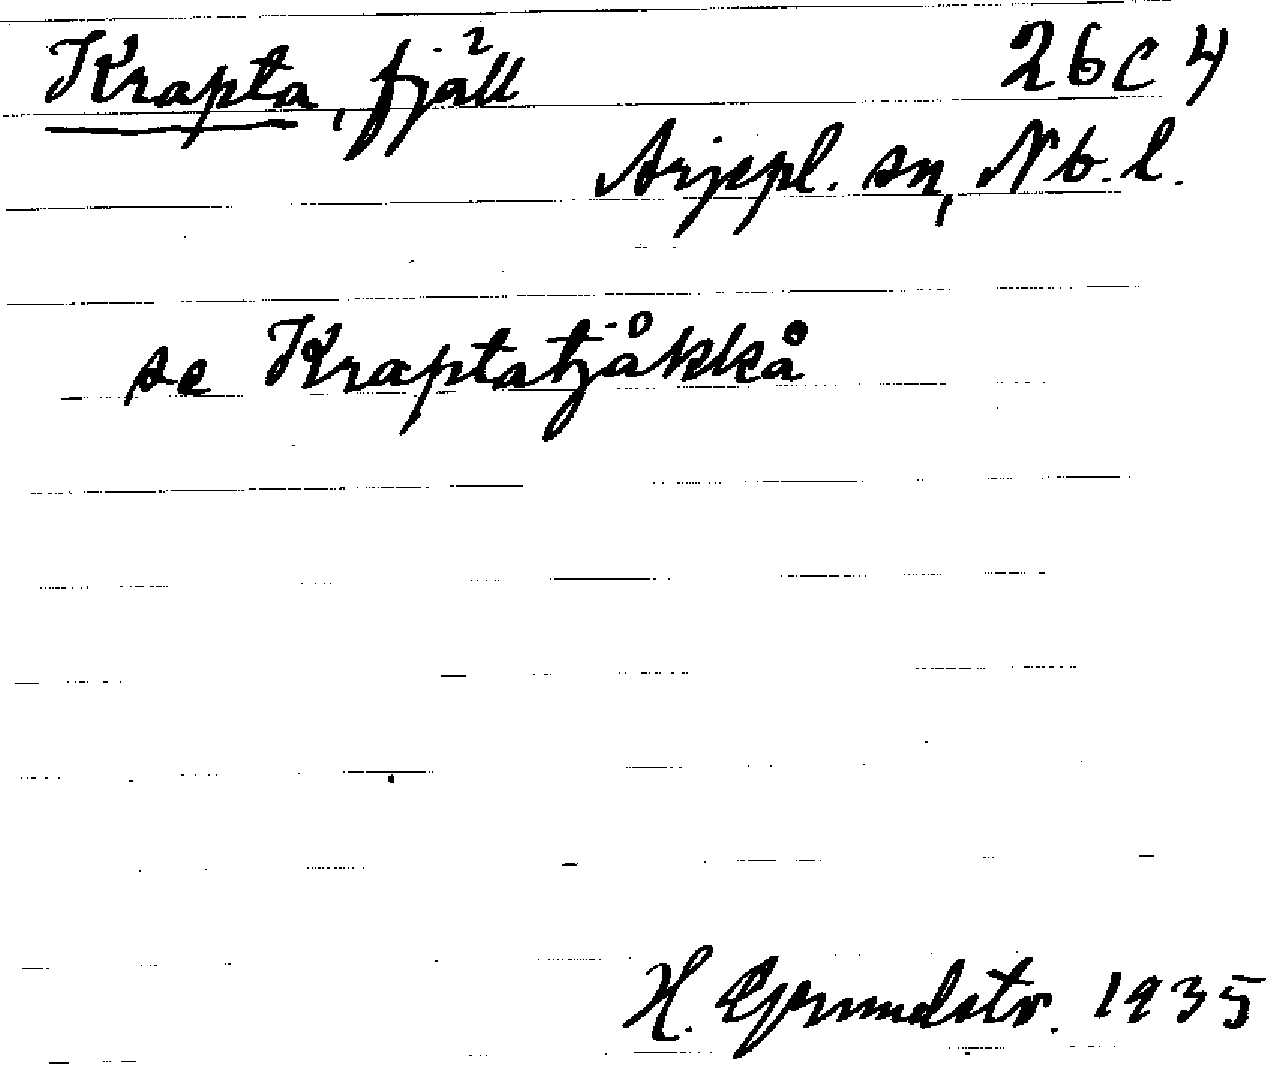 Krapta, fjäll 26C4
Arjepl. sn, Nb. l.
se Kraptatjåkkå
H. Grundstr. 1935